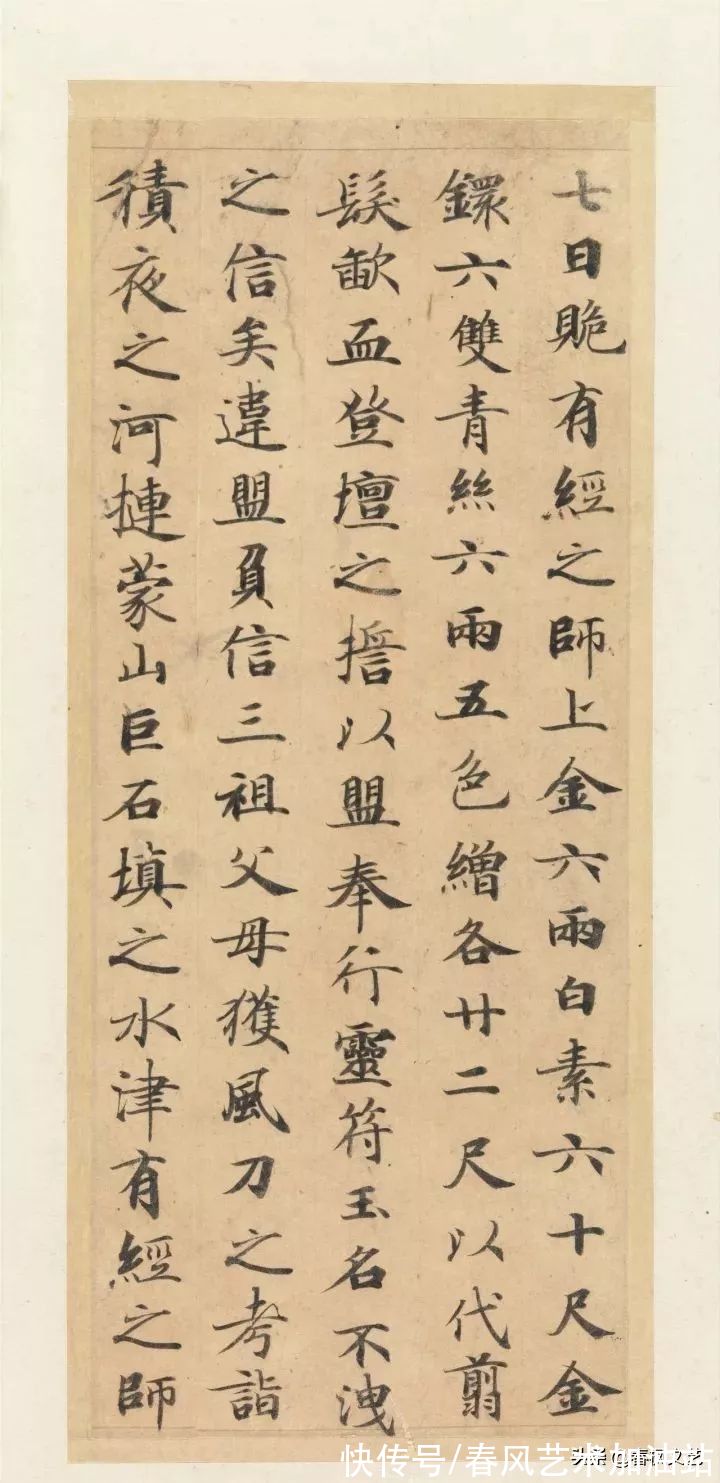 七日貹有經之師上金六兩白素六十尺金
鐶六雙青絲六兩五色繒各廿二尺以代翦
髮歃血登壇之誓以盟奉行靈符玉名不洩
之信矣違盟負信三祖父母獲風刀之考詣
積夜之河摙蒙山巨石填之水津有經之師
快传号/春风艺术加油站